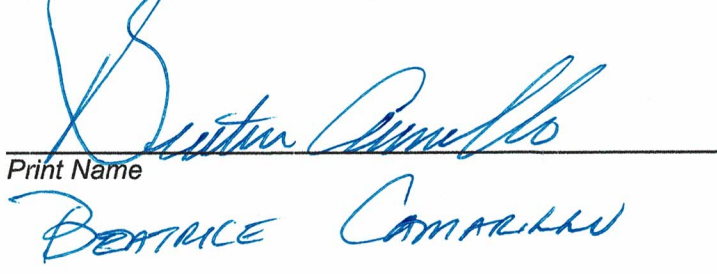 Beatrice Camarillo
Print Name
BEATRICE CAMARILLO